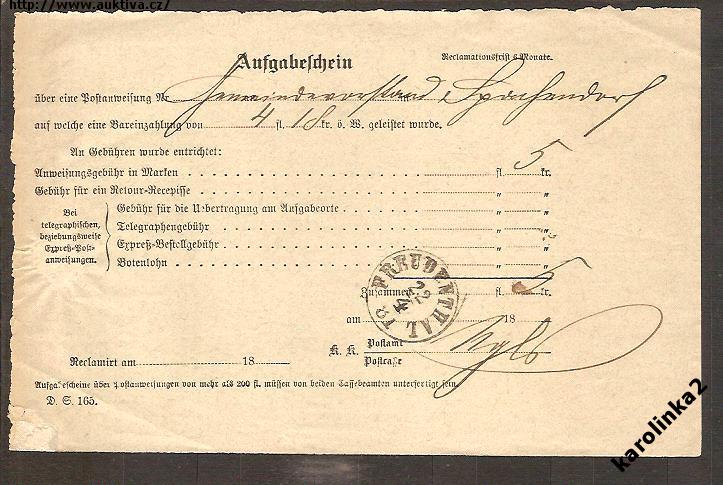 http://www.auktiva.cz/
Aufgabeschein
Reclamationsfrist 6 Monate.
über eine Postanweisung Nr. Gemeindevorstand Spachendorf
auf welche eine Bareinzahlung von 4 fl. 18 kr. ö. W. geleistet wurde.
An Gebühren wurde entrichtet:
Anweisungsgebühr in Marken fl. 5 kr.
Gebühr für ein Retour-Recepisse " "
Bei telegraphischen, beziehungsweise Expreß-Post-anweisungen.
Gebühr für die Uebertragung am Aufgabeorte " "
Telegraphengebühr " "
Expreß-Bestellgebühr " "
Botenlohn " "
Zusammen fl. 5 kr.
FREUDENTHAL
am 18
K. K. Postamt
Postcasse
Reclamirt am 18
Aufgabescheine über Postanweisungen von mehr als 200 fl. müssen von beiden Cassebeamten unterfertigt sein.
D. S. 165.
karolinka2